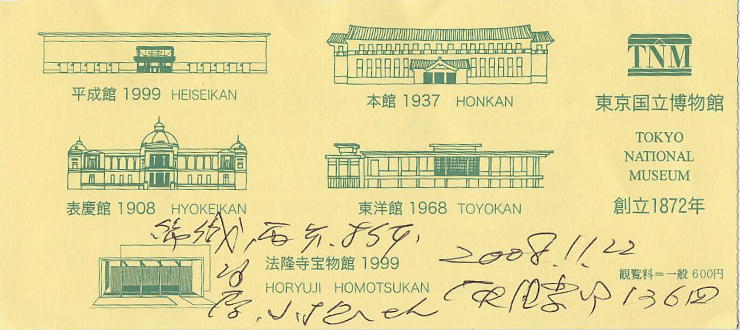 平成館 1999 HEISEIKAN
本館 1937 HONKAN
TNM
東京国立博物館
TOKYO
NATIONAL
MUSEUM
創立1872年
表慶館 1908 HYOKEIKAN
東洋館 1968 TOYOKAN
法隆寺宝物館 1999
HORYUJI HOMOTSUKAN
2008.11.22
観覧料=一般 600円
136回